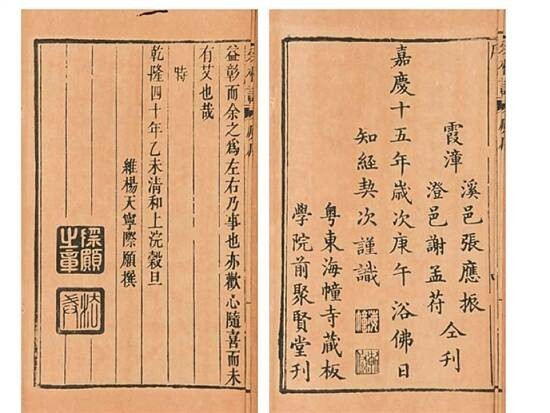 霞漳
溪邑張應振
澄邑謝孟苻
仝刊
嘉慶十五年歲次庚午浴佛日
知經契次謹識
粵東海幢寺藏板
學院前聚賢堂刊
益彰而余之爲左右乃事也亦歡心隨喜而未
有艾也哉
時
乾隆四十年乙未清和上浣穀旦
維楊天寧際願撰
際願之章